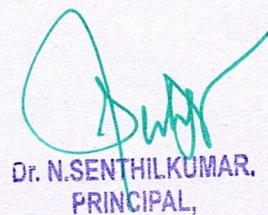 Dr. N.SENTHILKUMAR,
PRINCIPAL,